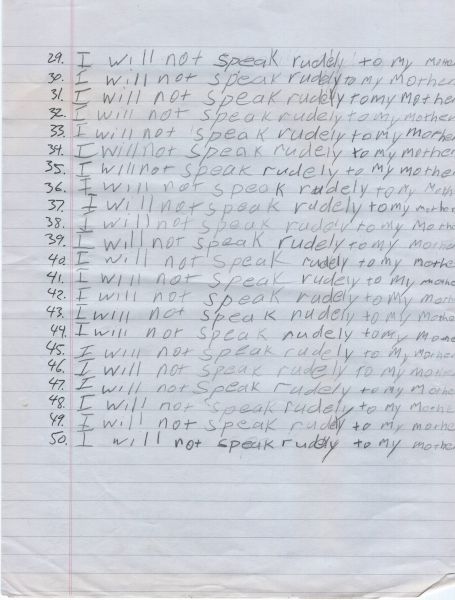 29. I will not speak rudely to my mothe
30. I will not speak rudely to my Mother
31. I will not speak rudely to my Mother
32. I will not speak rudely to my mother
33. I will not speak rudely to my mother
34. I will not speak rudely to my mother
35. I will not speak rudely to my mother
36. I will not speak rudely to my Mothe
37. I will not speak rudely to my mother
38. I will not speak rudely to my Mothe
39. I will not speak rudely to my Mothe
40 I will not speak rudely to my mothe
41. I will not speak rudely to my mothe
42. I will not speak rudely to my mothe
43. I will not speak rudely to my mothe
44. I will not speak rudely to my mothe
45. I will not speak rudely to my mothe
46. I will not speak rudely to my mothe
47. I will not speak rudely to my Mothe
48. I will not speak rudely to my Mothe
49. I will not speak rudely to my mothe
50. I will not speak rudely to my mother